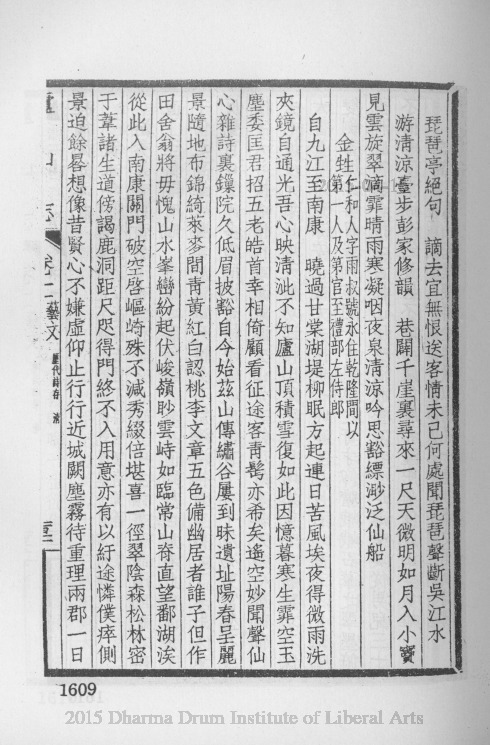 琵琶亭絕句　謫去宜無恨送客情未已何處聞琵琶聲斷吳江水
游清涼臺步彭家修韻　巷闢千崖裏尋來一尺天微明如月入小竇
見雲旋翠滴霏晴雨寒凝咽夜泉清涼吟思豁縹渺泛仙船
金甡仁和人字雨叔號永住乾隆間以
第一人及第官至禮部左侍郎
自九江至南康　曉過甘棠湖堤柳眠方起連日苦風埃夜得微雨洗
夾鏡自通光吾心映清泚不知廬山頂積雪復如此因憶暮寒生霏空玉
塵委匡君招五老皓首幸相倚顧看征途客青髩亦希矣遙空妙聞聲仙
心雜詩裏鏁院久低眉披豁自今始茲山傳繡谷屢到昧遺址陽春呈麗
景隨地布錦綺萊麥間青黃紅白認桃李文章五色備幽居者誰子但作
田舍翁將毋愧山水峯巒紛起伏峻嶺眇雲峙如臨常山脊直望鄱湖涘
從此入南康關門破空啓嶇崎殊不減秀綴倍堪喜一徑翠陰森松林密
于葦諸生道傍謁鹿洞距尺咫得門終不入用意亦有以紆途憐僕瘁側
景迫餘晷想像昔賢心不嫌虛仰止行行近城闕塵霧待重理兩郡一日
山志
卷十二
藝文
歷代詩存
清
1609
2015 Dharma Drum Institute of Liberal Arts